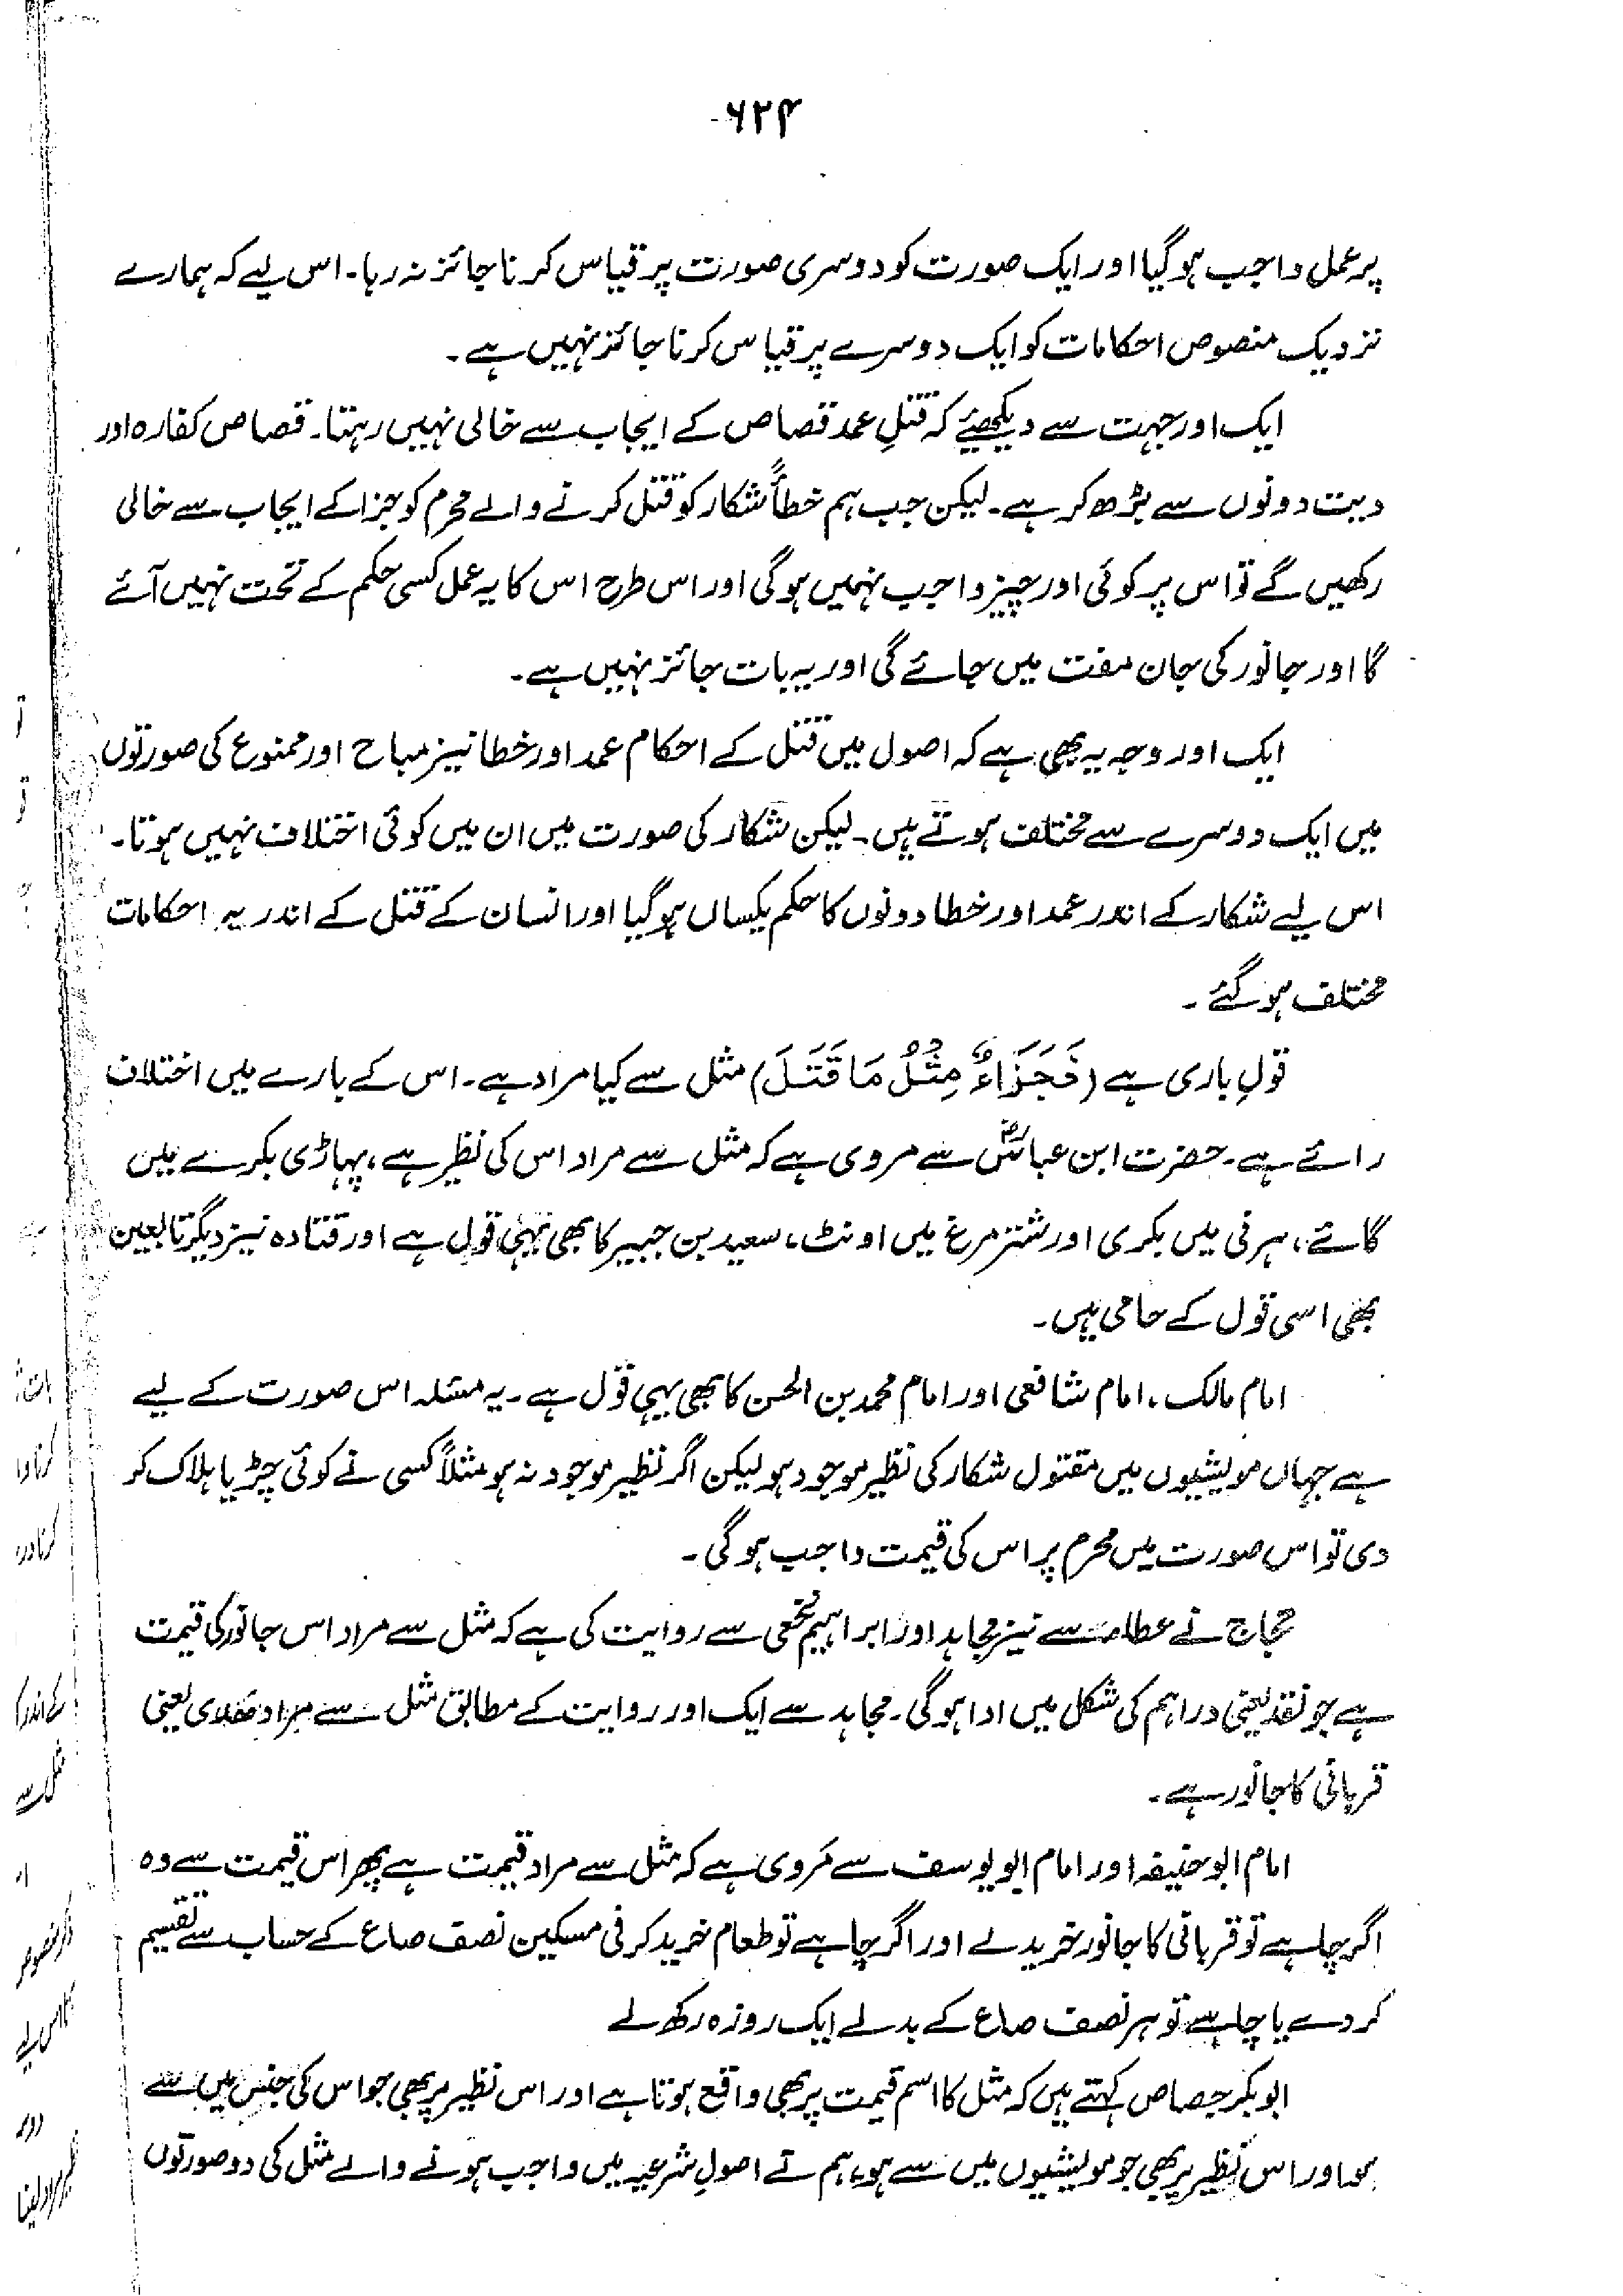 ۶۲۴
پر عمل واجب ہو گیا اور ایک صورت کو دوسری صورت پر قیاس کرنا جائز نہ رہا۔ اس لیے کہ ہمارے
نزدیک منصوص احکامات کو ایک دوسرے پر قیاس کرنا جائز نہیں ہے۔
ایک اور جہت سے دیکھیئے کہ قتلِ عمد قصاص کے ایجاب سے خالی نہیں رہتا۔ قصاص کفارہ اور
دیت دونوں سے بڑھ کر ہے۔ لیکن جب ہم خطأً شکار کو قتل کرنے والے محرم کو جزا کے ایجاب سے خالی
رکھیں گے تو اس پر کوئی اور چیز واجب نہیں ہو گی اور اس طرح اس کا یہ عمل کسی حکم کے تحت نہیں آئے
گا اور جانور کی جان مفت میں جائے گی اور یہ بات جائز نہیں ہے۔
ایک اور وجہ یہ بھی ہے کہ اصول میں قتل کے احکام عمد اور خطا نیز مباح اور ممنوع کی صورتوں
میں ایک دوسرے سے مختلف ہوتے ہیں۔ لیکن شکار کی صورت میں ان میں کوئی اختلاف نہیں ہوتا۔
اس لیے شکار کے اندر عمد اور خطا دونوں کا حکم یکساں ہو گیا اور انسان کے قتل کے اندر یہ احکامات
مختلف ہو گئے۔
قولِ باری ہے (فَجَزَاءٌ مِثْلُ مَا قَتَلَ) مثل سے کیا مراد ہے۔ اس کے بارے میں اختلاف
رائے ہے۔ حضرت ابن عباسؓ سے مروی ہے کہ مثل سے مراد اس کی نظر ہے، پہاڑی بکرے میں
گائے، ہرنی میں بکری اور شتر مرغ میں اونٹ، سعید بن جبیر کا بھی یہی قول ہے اور قتادہ نیز دیگر تابعین
بھی اسی قول کے حامی ہیں۔
امام مالک، امام شافعی اور امام محمد بن الحسن کا بھی یہی قول ہے۔ یہ مسئلہ اس صورت کے لیے
ہے جہاں مویشیوں میں مقتول شکار کی نظیر موجود ہو لیکن اگر نظیر موجود نہ ہو مثلاً کسی نے کوئی چڑیا ہلاک کر
دی تو اس صورت میں محرم پر اس کی قیمت واجب ہو گی۔
حجاج نے عطاء سے نیز مجاہد اور ابراہیم نخعی سے روایت کی ہے کہ مثل سے مراد اس جانور کی قیمت
ہے جو نقد یعنی دراہم کی شکل میں ادا ہو گی۔ مجاہد سے ایک اور روایت کے مطابق مثل سے مراد ھدی یعنی
قربانی کا جانور ہے۔
امام ابو حنیفہ اور امام ابو یوسف سے مروی ہے کہ مثل سے مراد قیمت ہے پھر اس قیمت سے وہ
اگر چاہے تو قربانی کا جانور خرید لے اور اگر چاہے تو طعام خرید کر فی مسکین نصف صاع کے حساب سے تقسیم
کر دے یا چاہے تو ہر نصف صاع کے بدلے ایک روزہ رکھ لے
ابو بکر جصاص کہتے ہیں کہ مثل کا اسم قیمت پر بھی واقع ہوتا ہے اور اس نظیر پر بھی جو اس کی جنس میں سے
ہو اور اس نظیر پر بھی جو مویشیوں میں سے ہو، ہم نے اصول شرعیہ میں واجب ہونے والے مثل کی دو صورتوں